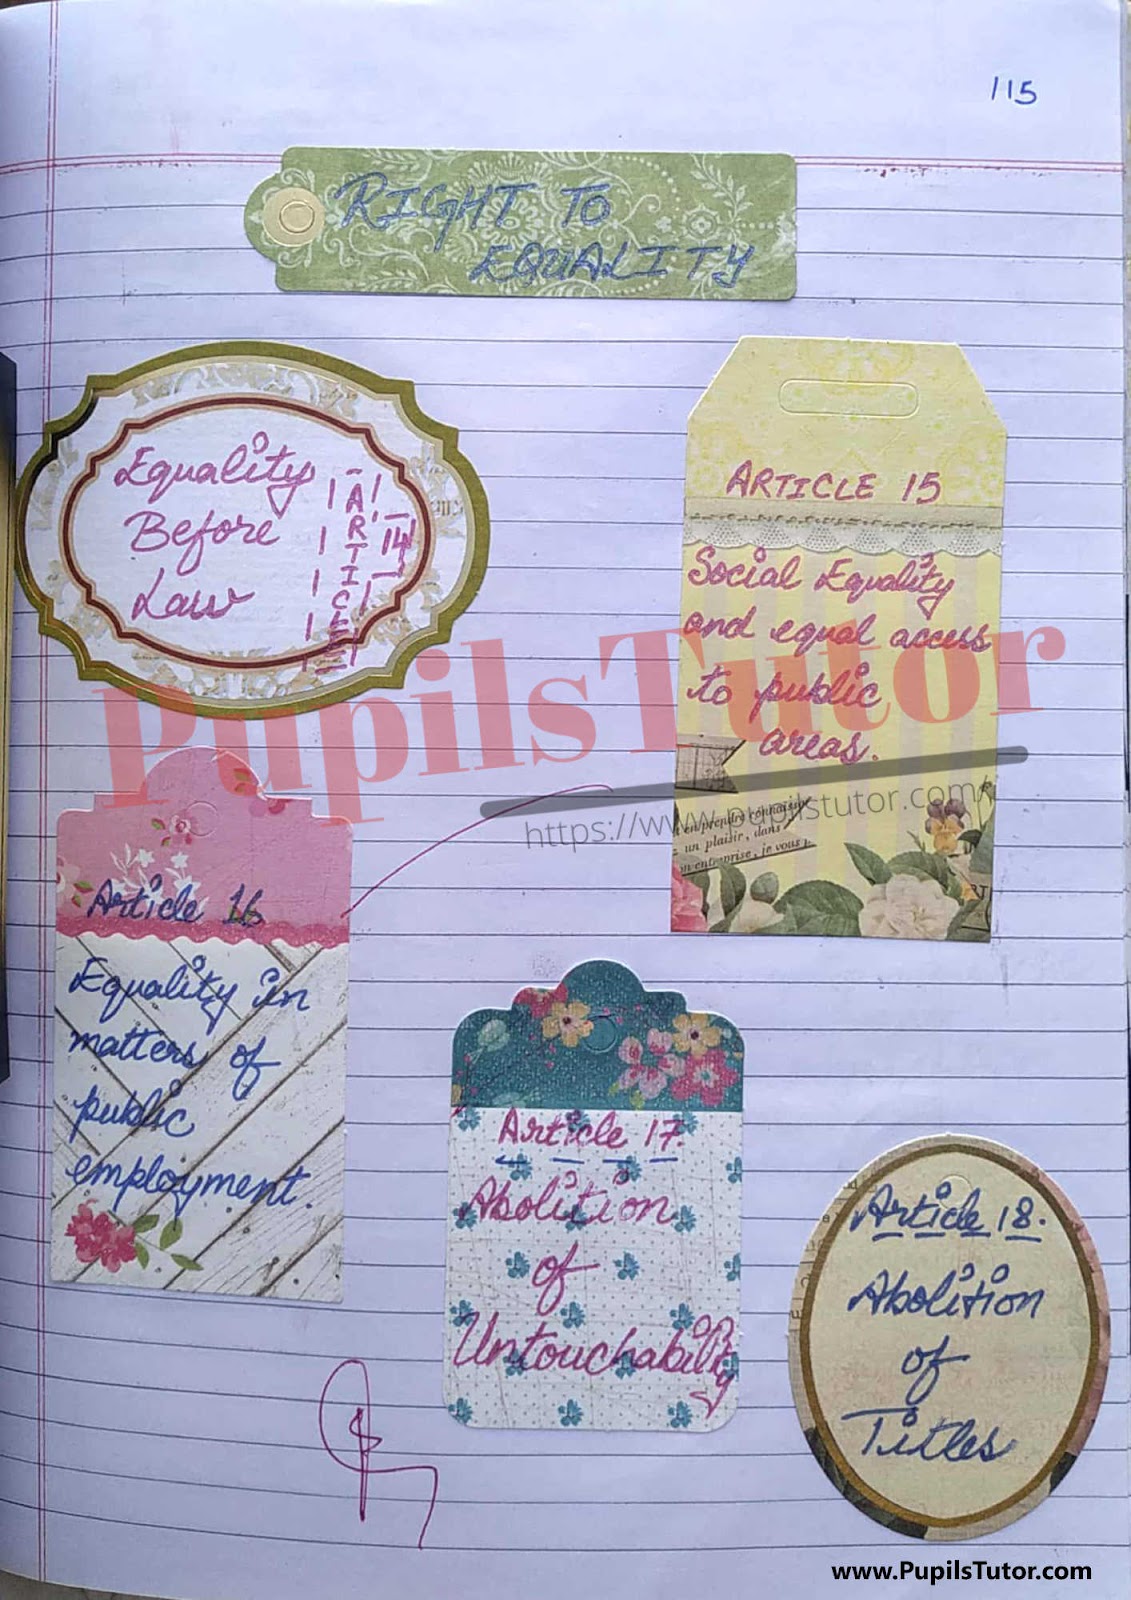 115
RIGHT TO
EQUALITY
Equality
Before
Law
ARTICLE
14
ARTICLE 15
Social Equality
and equal access
to public
areas.
en prendre connaissa
un plaisir, dans
on entreprise, je vous
PupilsTutor
https://www.pupilstutor.com/
Article 16
Equality in
matters of
public
employment.
Article 17.
Abolition
of
Untouchability
Article 18.
Abolition
of
Titles
www.PupilsTutor.com